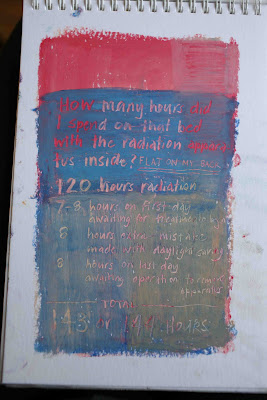 How many hours did
I spend on that bed
with the radiation appara
tus inside? FLAT ON MY BACK
120 hours radiation
7-8 hours on first day
awaiting for treatment to begin
8 hours extra mistake
made with daylight saving
8 hours on last day
awaiting operation to remove
apparatus
TOTAL
143 or 144 HOURS